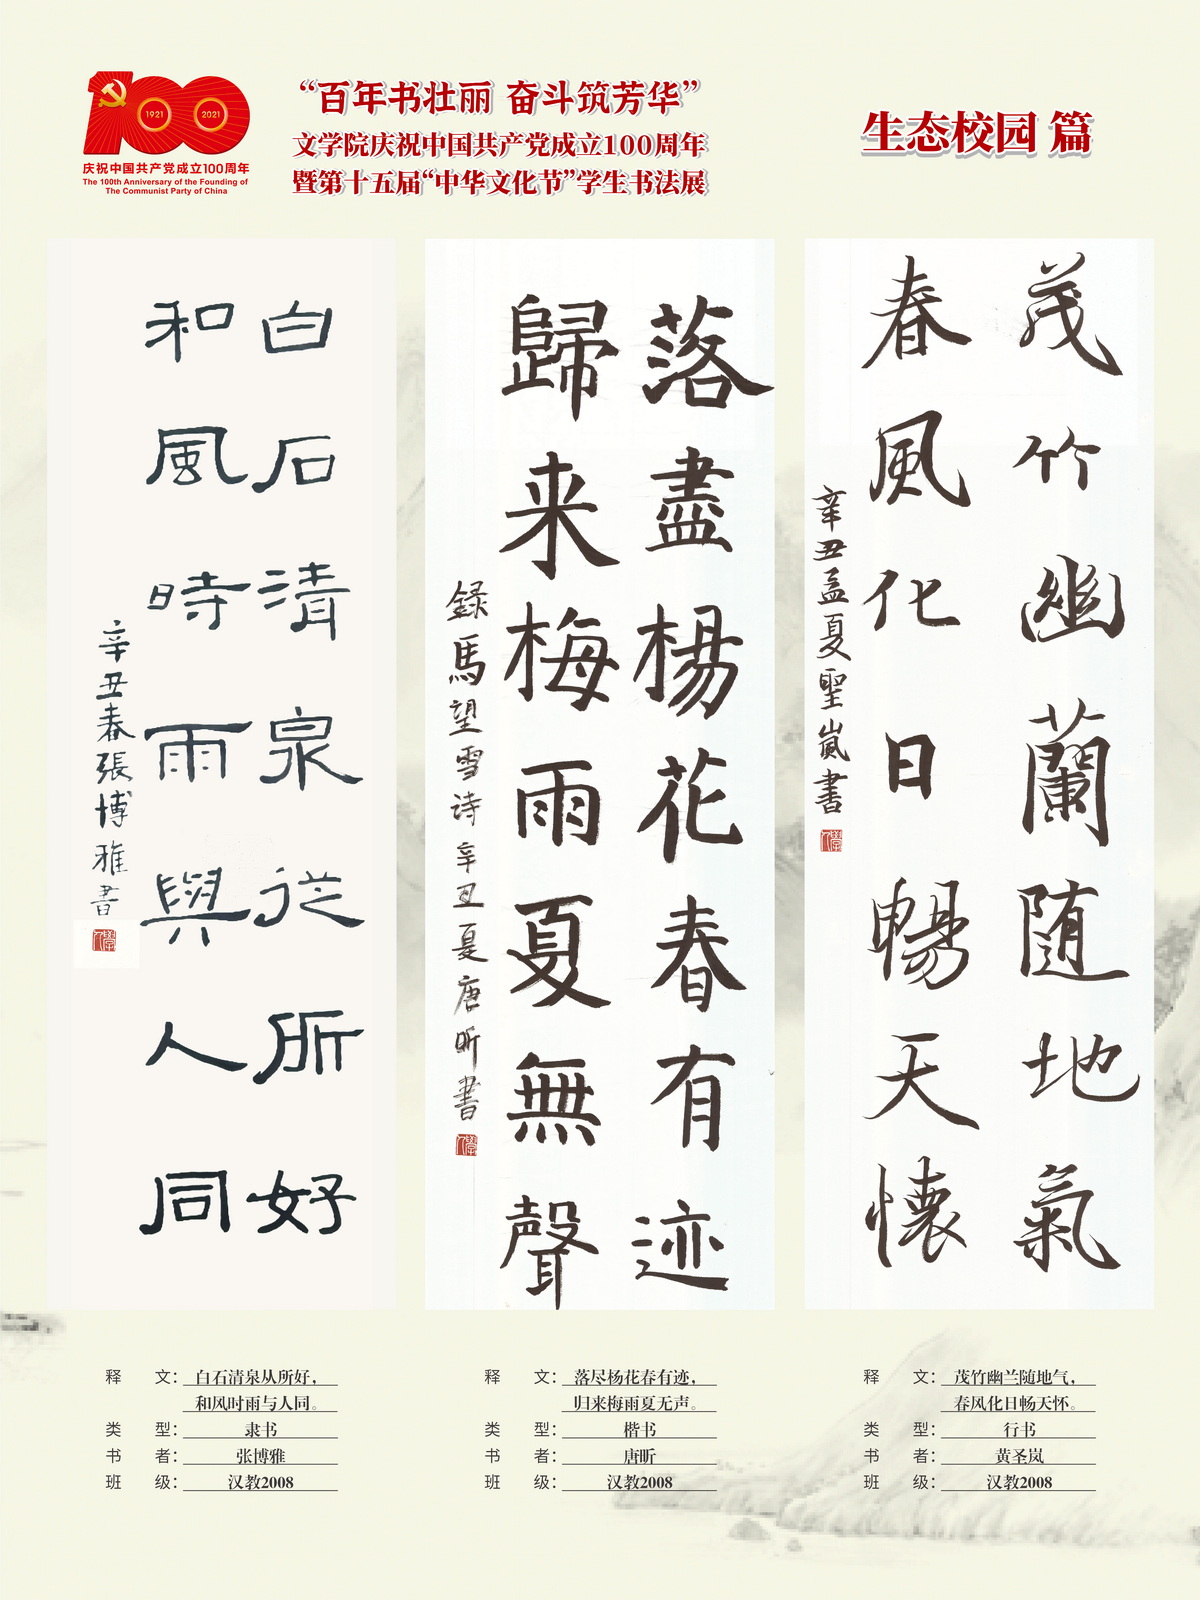 1921
2021
庆祝中国共产党成立100周年
The 100th Anniversary of the Founding of
The Communist Party of China
“百年书壮丽 奋斗筑芳华”
文学院庆祝中国共产党成立100周年
暨第十五届“中华文化节”学生书法展
生态校园 篇
白石清泉從所好
和風時雨與人同
辛丑春張博雅書
落盡楊花春有迹
歸来梅雨夏無聲
録馬望雪诗辛丑夏唐昕書
茂竹幽蘭随地氣
春風化日暢天懷
辛丑孟夏聖嵐書
释 文：白石清泉从所好，
和风时雨与人同。
类 型：隶书
书 者：张博雅
班 级：汉教2008
释 文：落尽杨花春有迹，
归来梅雨夏无声。
类 型：楷书
书 者：唐昕
班 级：汉教2008
释 文：茂竹幽兰随地气，
春风化日畅天怀。
类 型：行书
书 者：黄圣岚
班 级：汉教2008